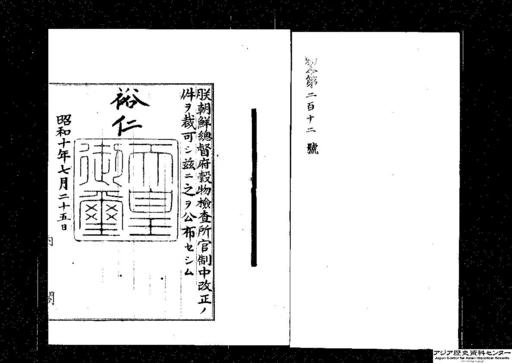 勅令第二百十二號
朕朝鮮總督府穀物檢査所官制中改正ノ
件ヲ裁可シ玆ニ之ヲ公布セシム
裕仁
天皇御璽
昭和十年七月二十五日
内閣
アジア歴史資料センター
Japan Center for Asian Historical Records